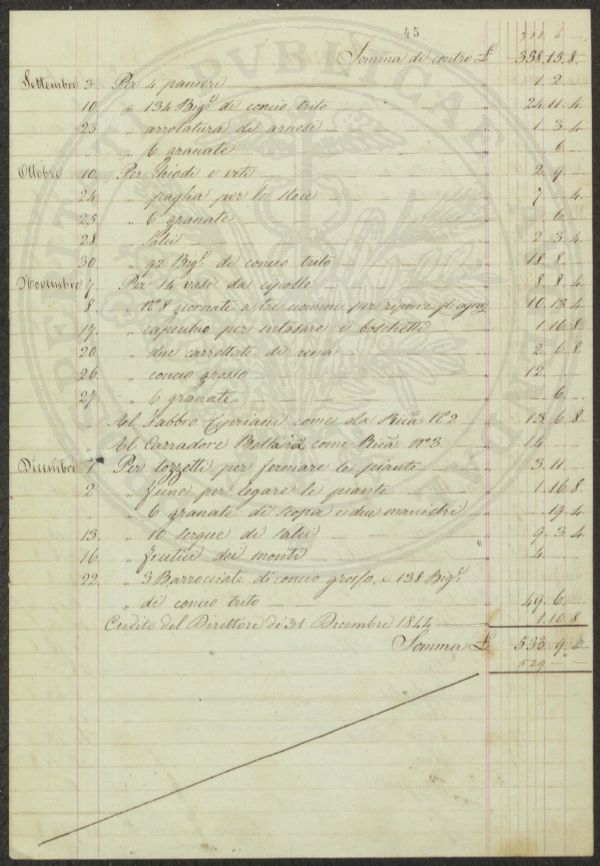 45
388. 6
Somma di contro £ 338.13.8
Settembre 3. Per 4 panieri 1. 2.
10 " 134 Big.e di concio trito 24.11.4
25 " arrotatura di arnesi 1. 3. 4
" " 6 granate 6.
Ottobre 10. Per chiodi e viti 2. 9.
24. " paglia per le stoie 7. 4
25. " 6 granate 6.
28 " Pali 2. 3. 4
30. " 92 Big.e di concio trito 18. 8.
Novembre 7. Per 14 vasi da cipolle 8. 8. 4
8. " N.o 8 giornate a tre uomini per riporre gli agrumi 10. 13. 4
17. " capecchio per intasare i boschetti 1. 16. 8
20 " due carrettate di rena 2. 6. 8
26. " concio grosso 12.
27 " 6 granate 6.
" Al Fabbro Cipriani come da Ric.a N.o 2 13. 6. 8
" Al Carradore come Ric.a N.o 3. 14
Dicembre 1. Per pozzetti per fermare le piante 3. 11.
2 " fune per legare le piante 1. 16. 8
" 6 granate di scopa e due manichi 19. 4
13. " 10 serque di Pali 9. 3. 4
16. " dei monti 4
22. " 3 Barrocciate di concio grosso, e 138 Big.e
" di concio trito 49. 6.
Credito del Direttore de' 31 Dicembre 1844 1. 10. 8
Somma £ 533. 9. 4
529